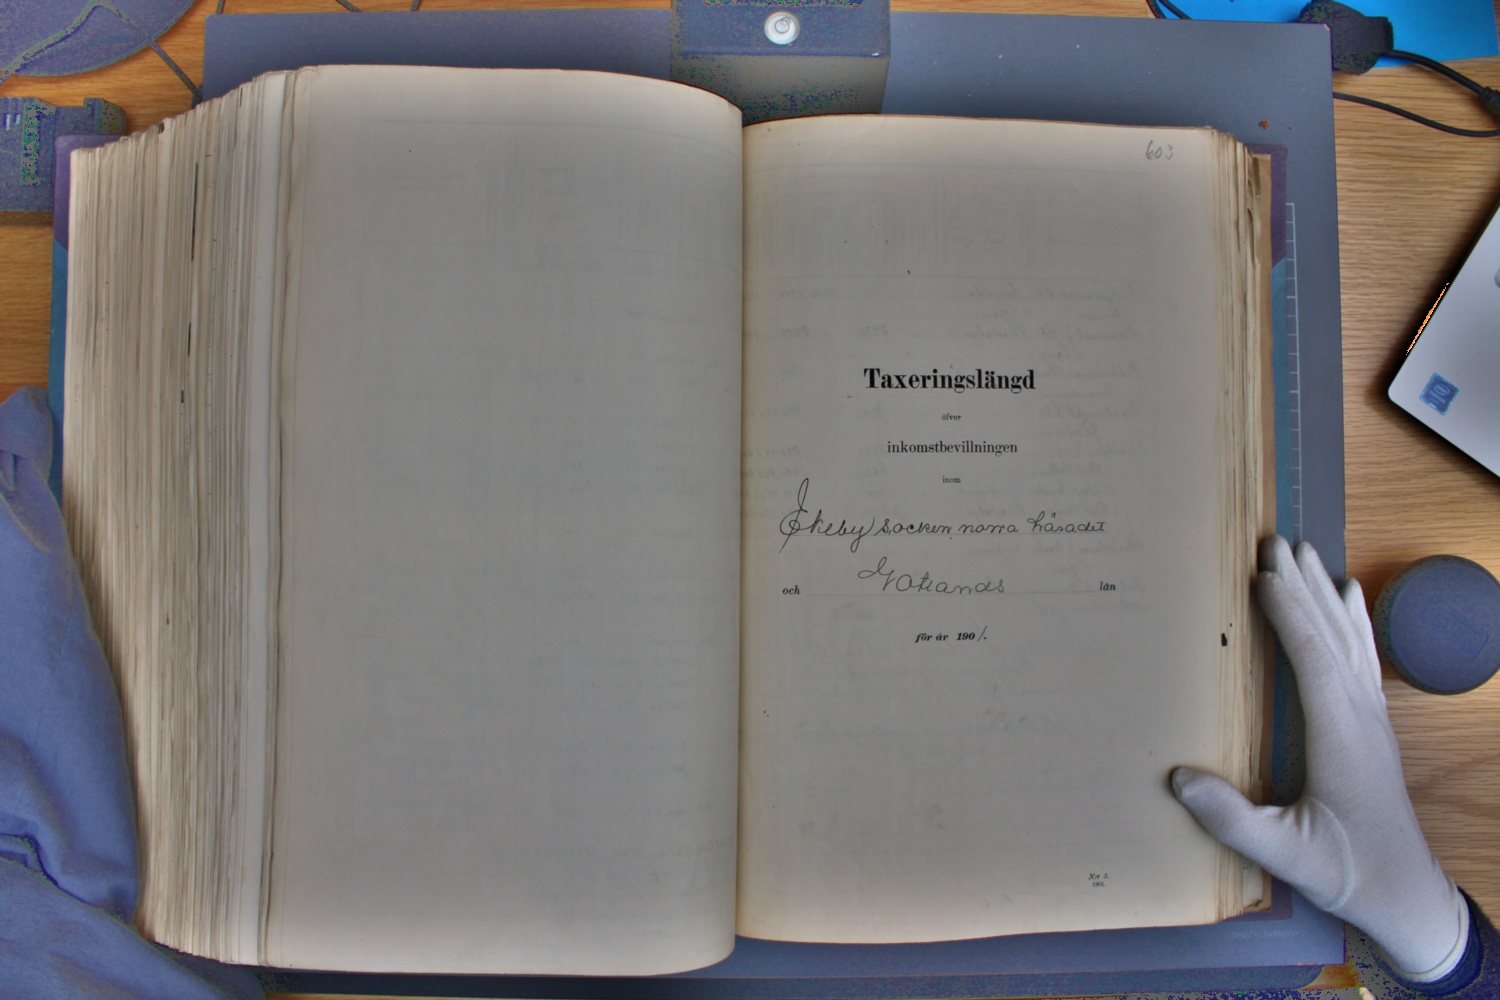 603
Taxeringslängd
öfver
inkomstbevillningen
inom
Ekeby socken norra häradet
och Gotlands län
för år 1901.
N:r 3.
1901.